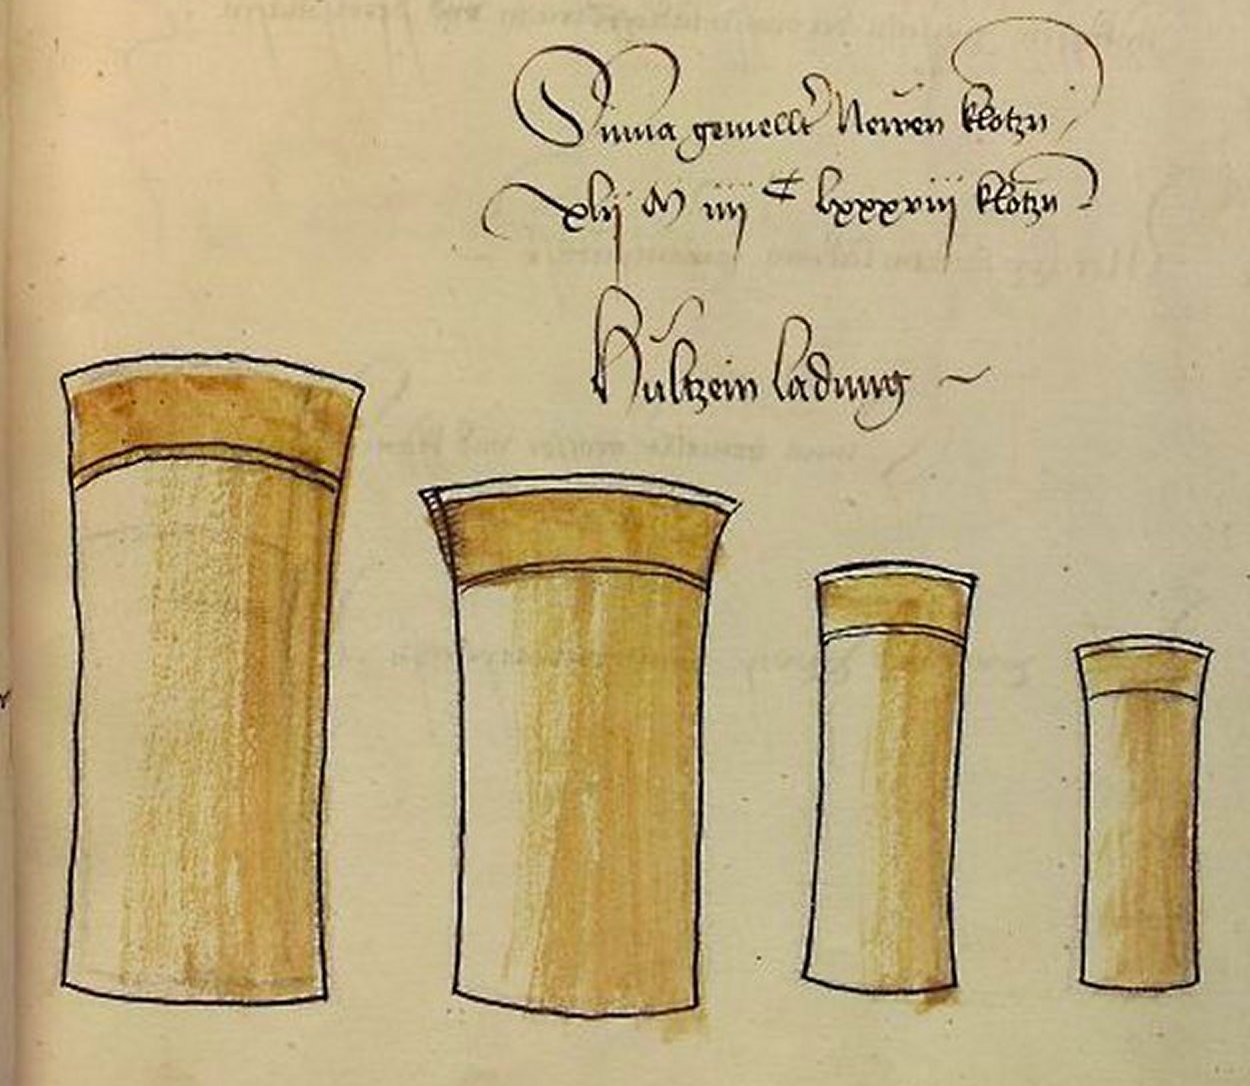 Suma gemellt Newen klotzn
xlij M iiij C lxxxviij klotzn
Hultzein ladung ~